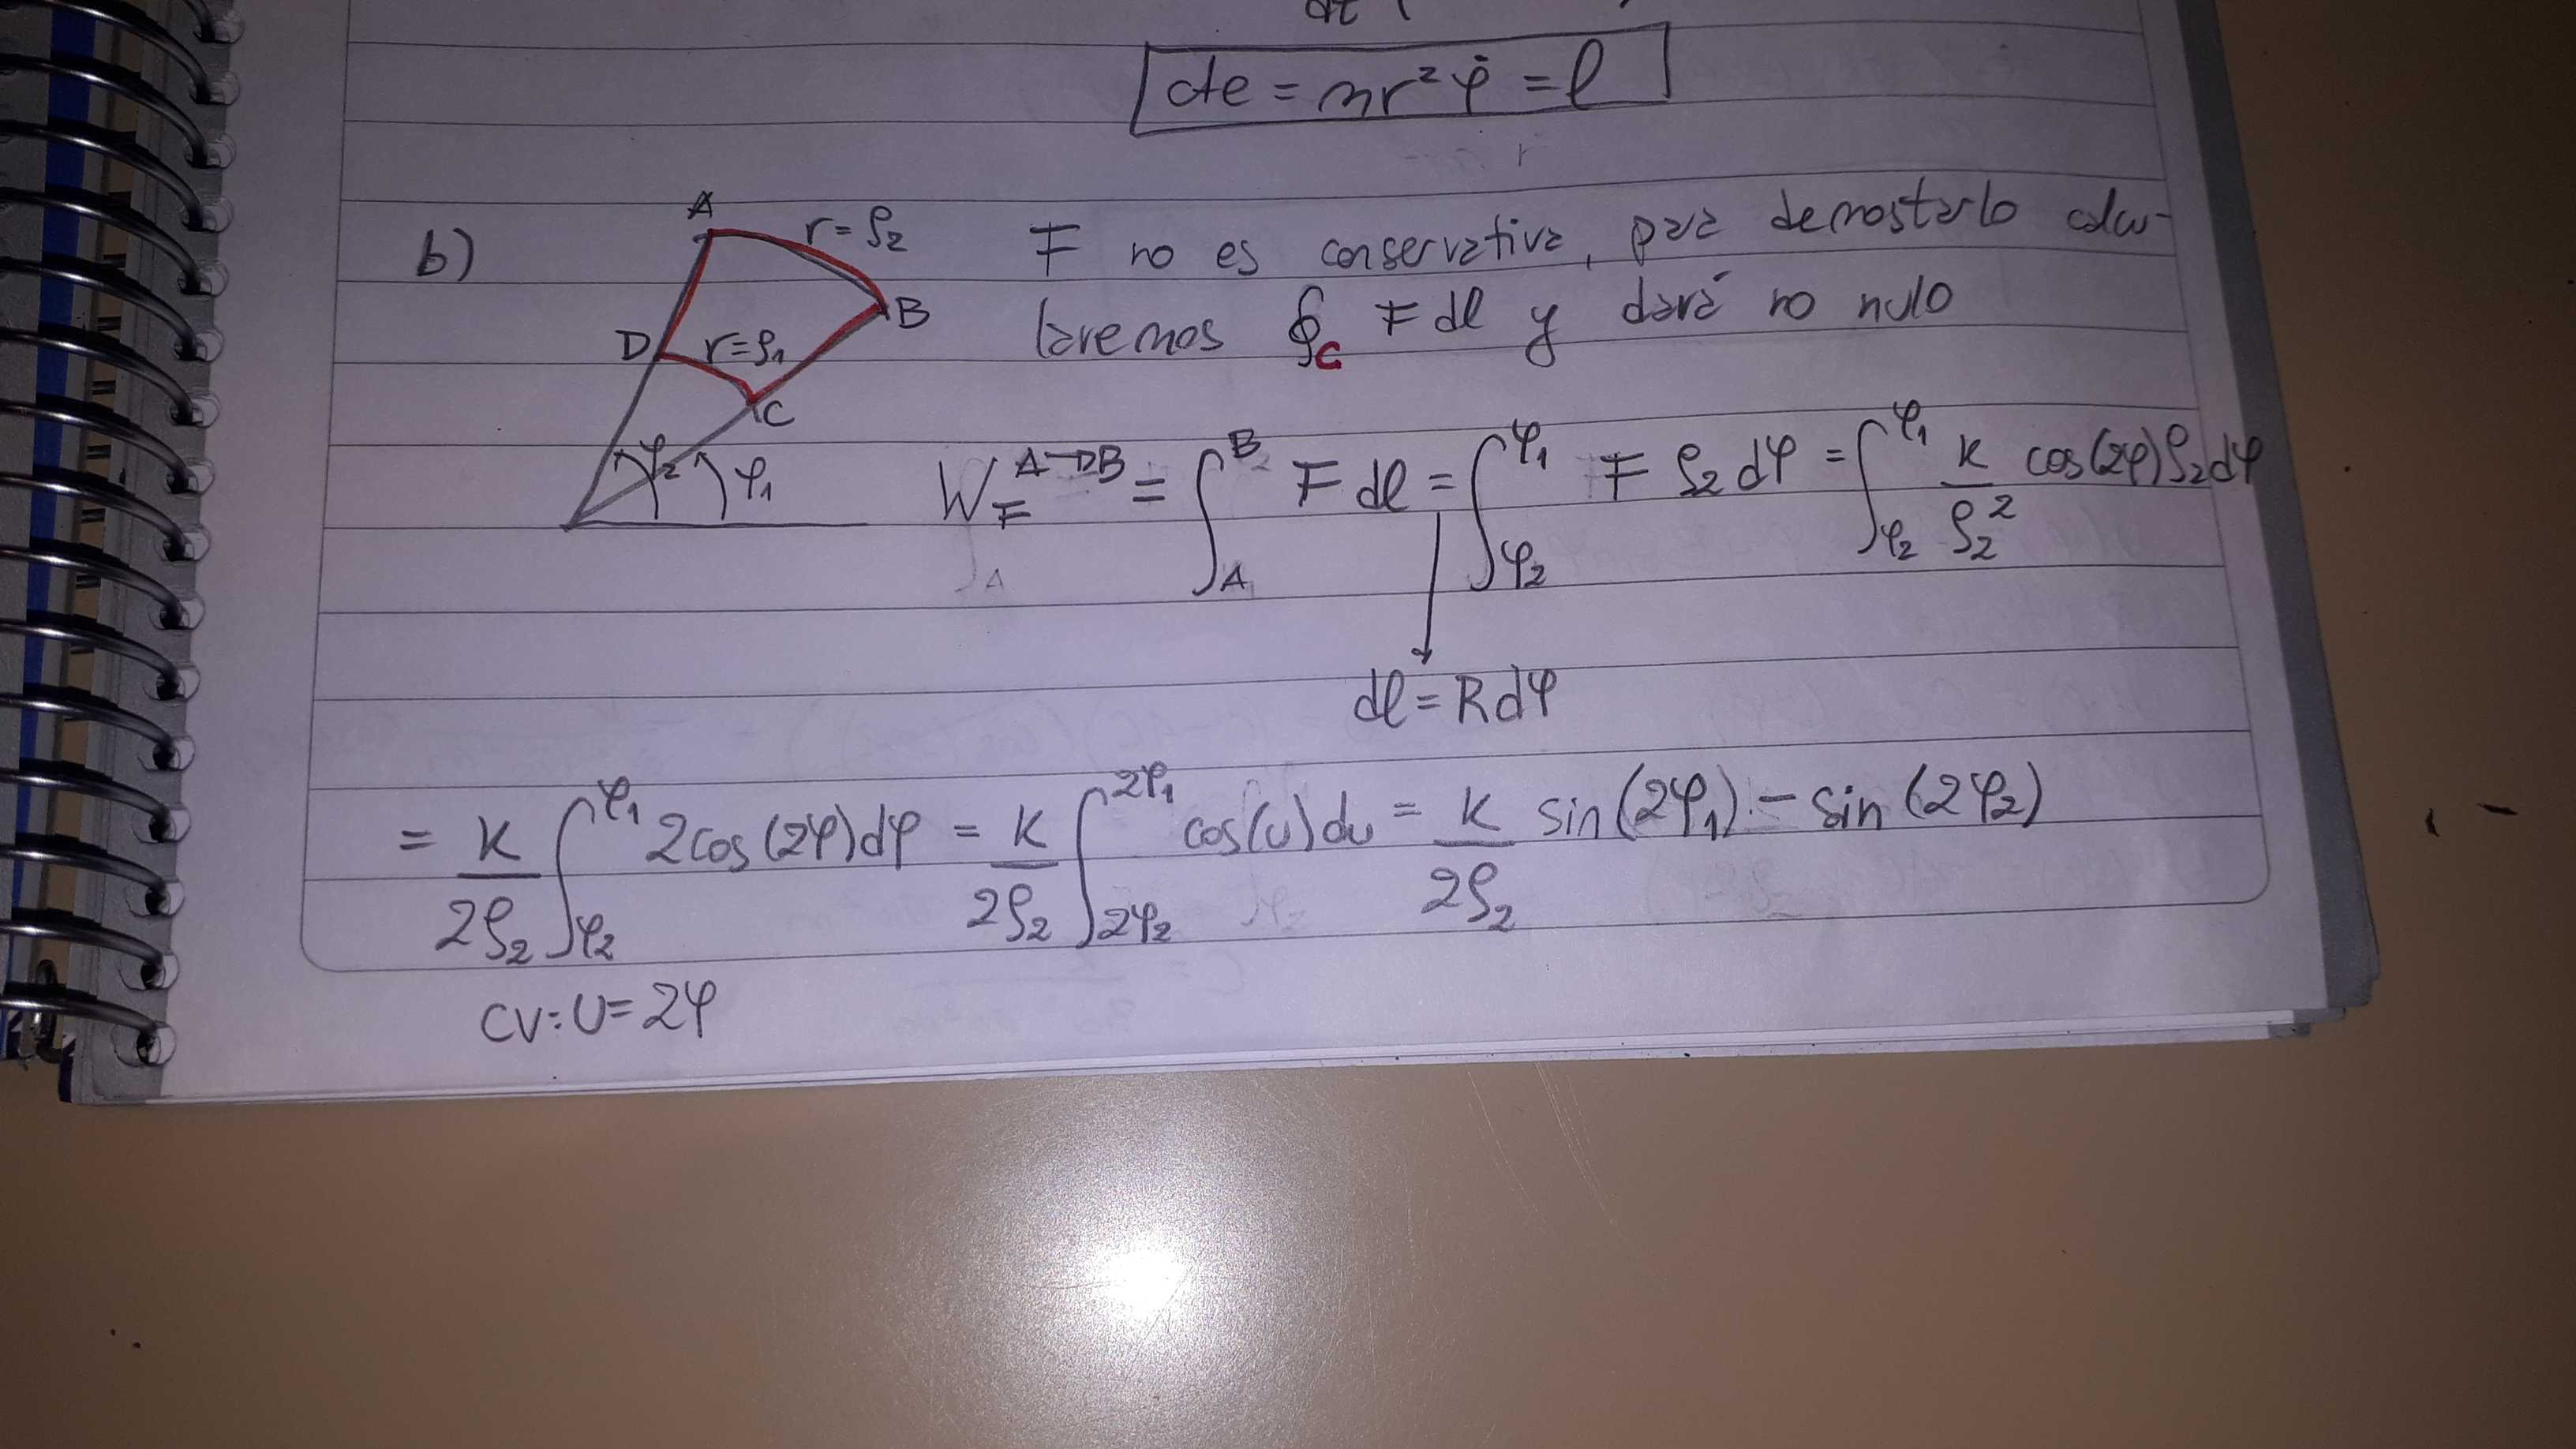 cte = mr² φ̇ = l
b)
A
r=ρ₂
B
D
r=ρ₁
C
φ₂
φ₁
F no es conservativa, para demostarlo calcu-
laremos ∮_C F dl y dará no nulo
W_F^{A→B} = ∫_A^B F dl = ∫_{φ₂}^{φ₁} F ρ₂ dφ = ∫_{φ₂}^{φ₁} K/ρ₂² cos(2φ) ρ₂ dφ
dl = R dφ
= K/2ρ₂ ∫_{φ₂}^{φ₁} 2cos(2φ)dφ = K/2ρ₂ ∫_{2φ₂}^{2φ₁} cos(u)du = K/2ρ₂ sin(2φ₁) - sin(2φ₂)
CV: U=2φ